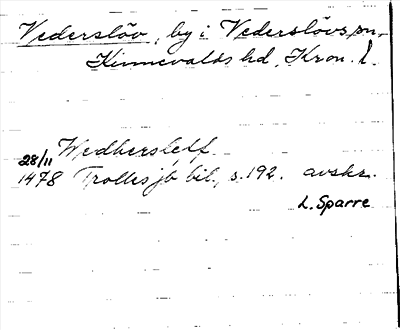 Vederslöv, by i Vederslövs sn,
Kinnevalds hd, Kron. l.
Wedherslelf
28/11
1478 Trolles jb bil., s. 192. avskr.
L. Sparre